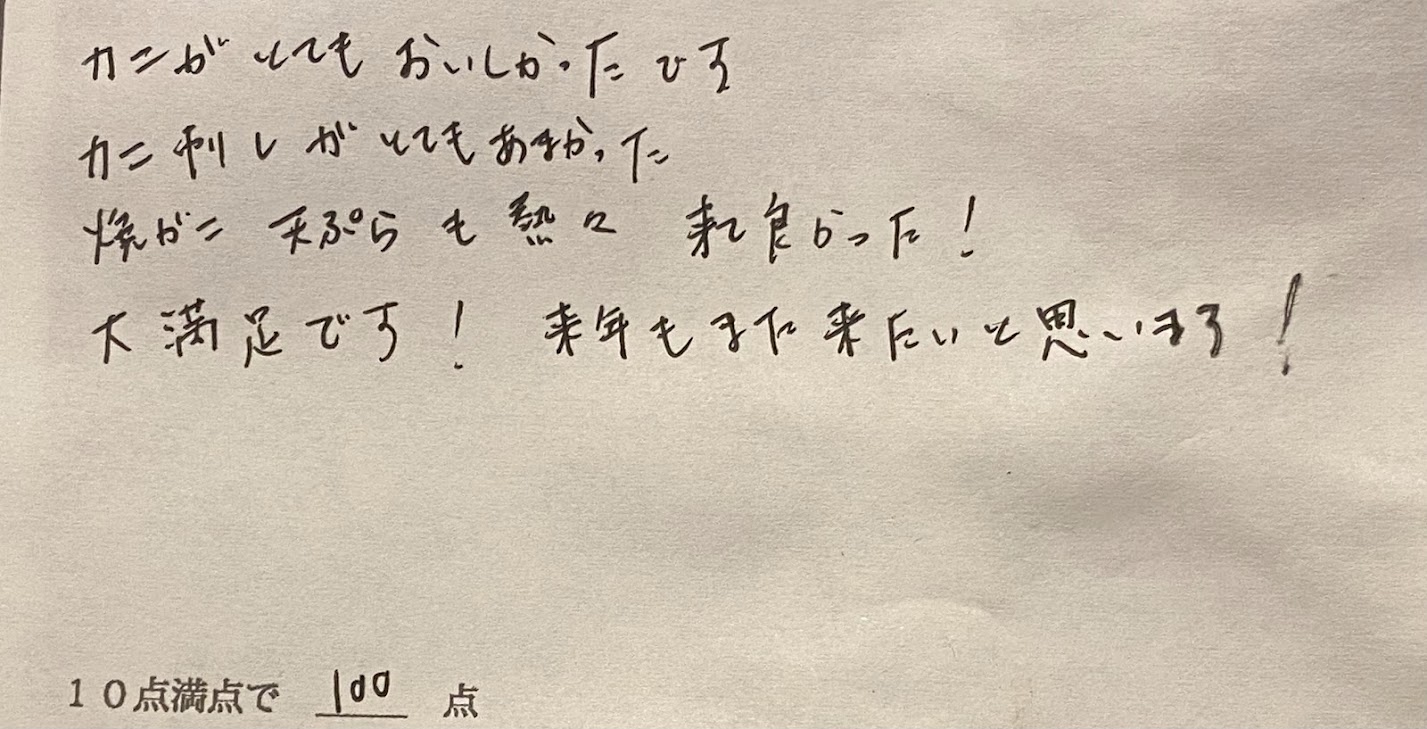 カニがとてもおいしかったです
カニ刺しがとてもあまかった
焼がニ 天ぷらも熱々 来て良かった!
大満足です! 来年もまた来たいと思います!
10点満点で 100 点